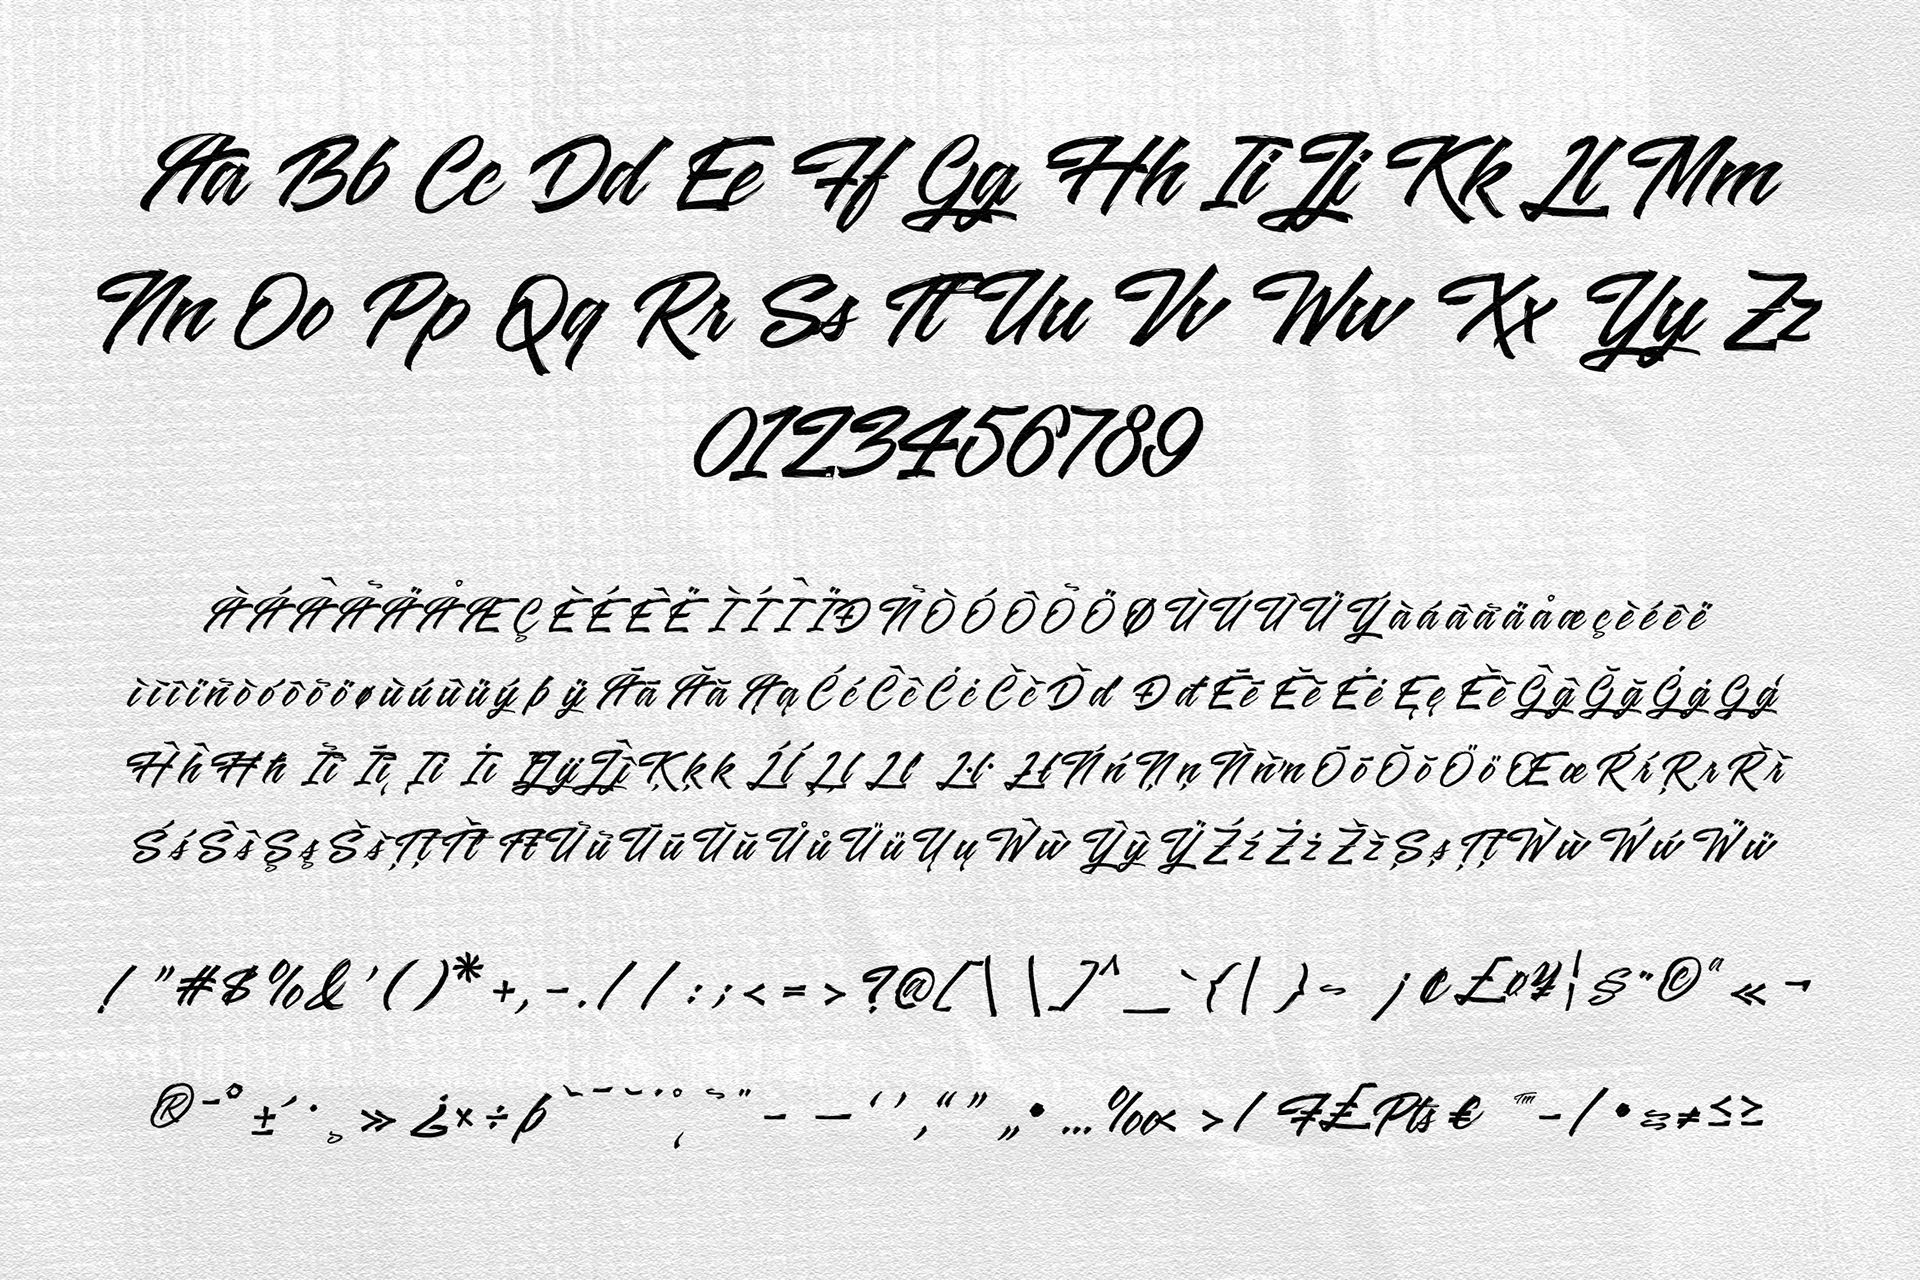 Aa Bb Cc Dd Ee Ff Gg Hh Ii Jj Kk Ll Mm
Nn Oo Pp Qq Rr Ss Tt Uu Vv Ww Xx Yy Zz
0123456789
ÀÁÂÃÄÅÆÇÈÉÊËÌÍÎÏÐÑÒÓÔÕÖØÙÚÛÜÝàáâãäåæçèéêë
ìíîïñòóôõöøùúûüýþÿĀāĂăĄąĆćĈĉĊċČčĎďĐđĒēĔĕĖėĘęĚěĜĝĞğĠġĢģ
ĤĥĦħĨĩĪīĮįİiĲĳĴĵĶķkĹĺĻļĽľĿŀŁłŃńŅņŇňŉŌōŎŏŐőŒœŔŕŖŗŘř
ŚśŜŝŞşŠšŢţŤťŦŧŨũŪūŬŭŮůŰűŲųŴŵŶŷŸŹźŻżŽžȘșȚțẀẁẂẃẄẅ
! " # $ % & ' ( ) * + , - . / / : ; < = > ? @ [ \ \ ] ^ _ ` { | } ~ ¡ ¢ £ ¤ ¥ ¦ § ¨ © ª « ¬
® ¯ ° ± ´ · ¸ » ¿ × ÷ þ ˋ ˉ ˘ ˙ ˚ ˛ ˜ ˝ – — ‘ ’ ‚ “ ” „ • … ‰ > / ₣ ₤ ₧ € ™ − ∕ ∙ ≈ ≠ ≤ ≥